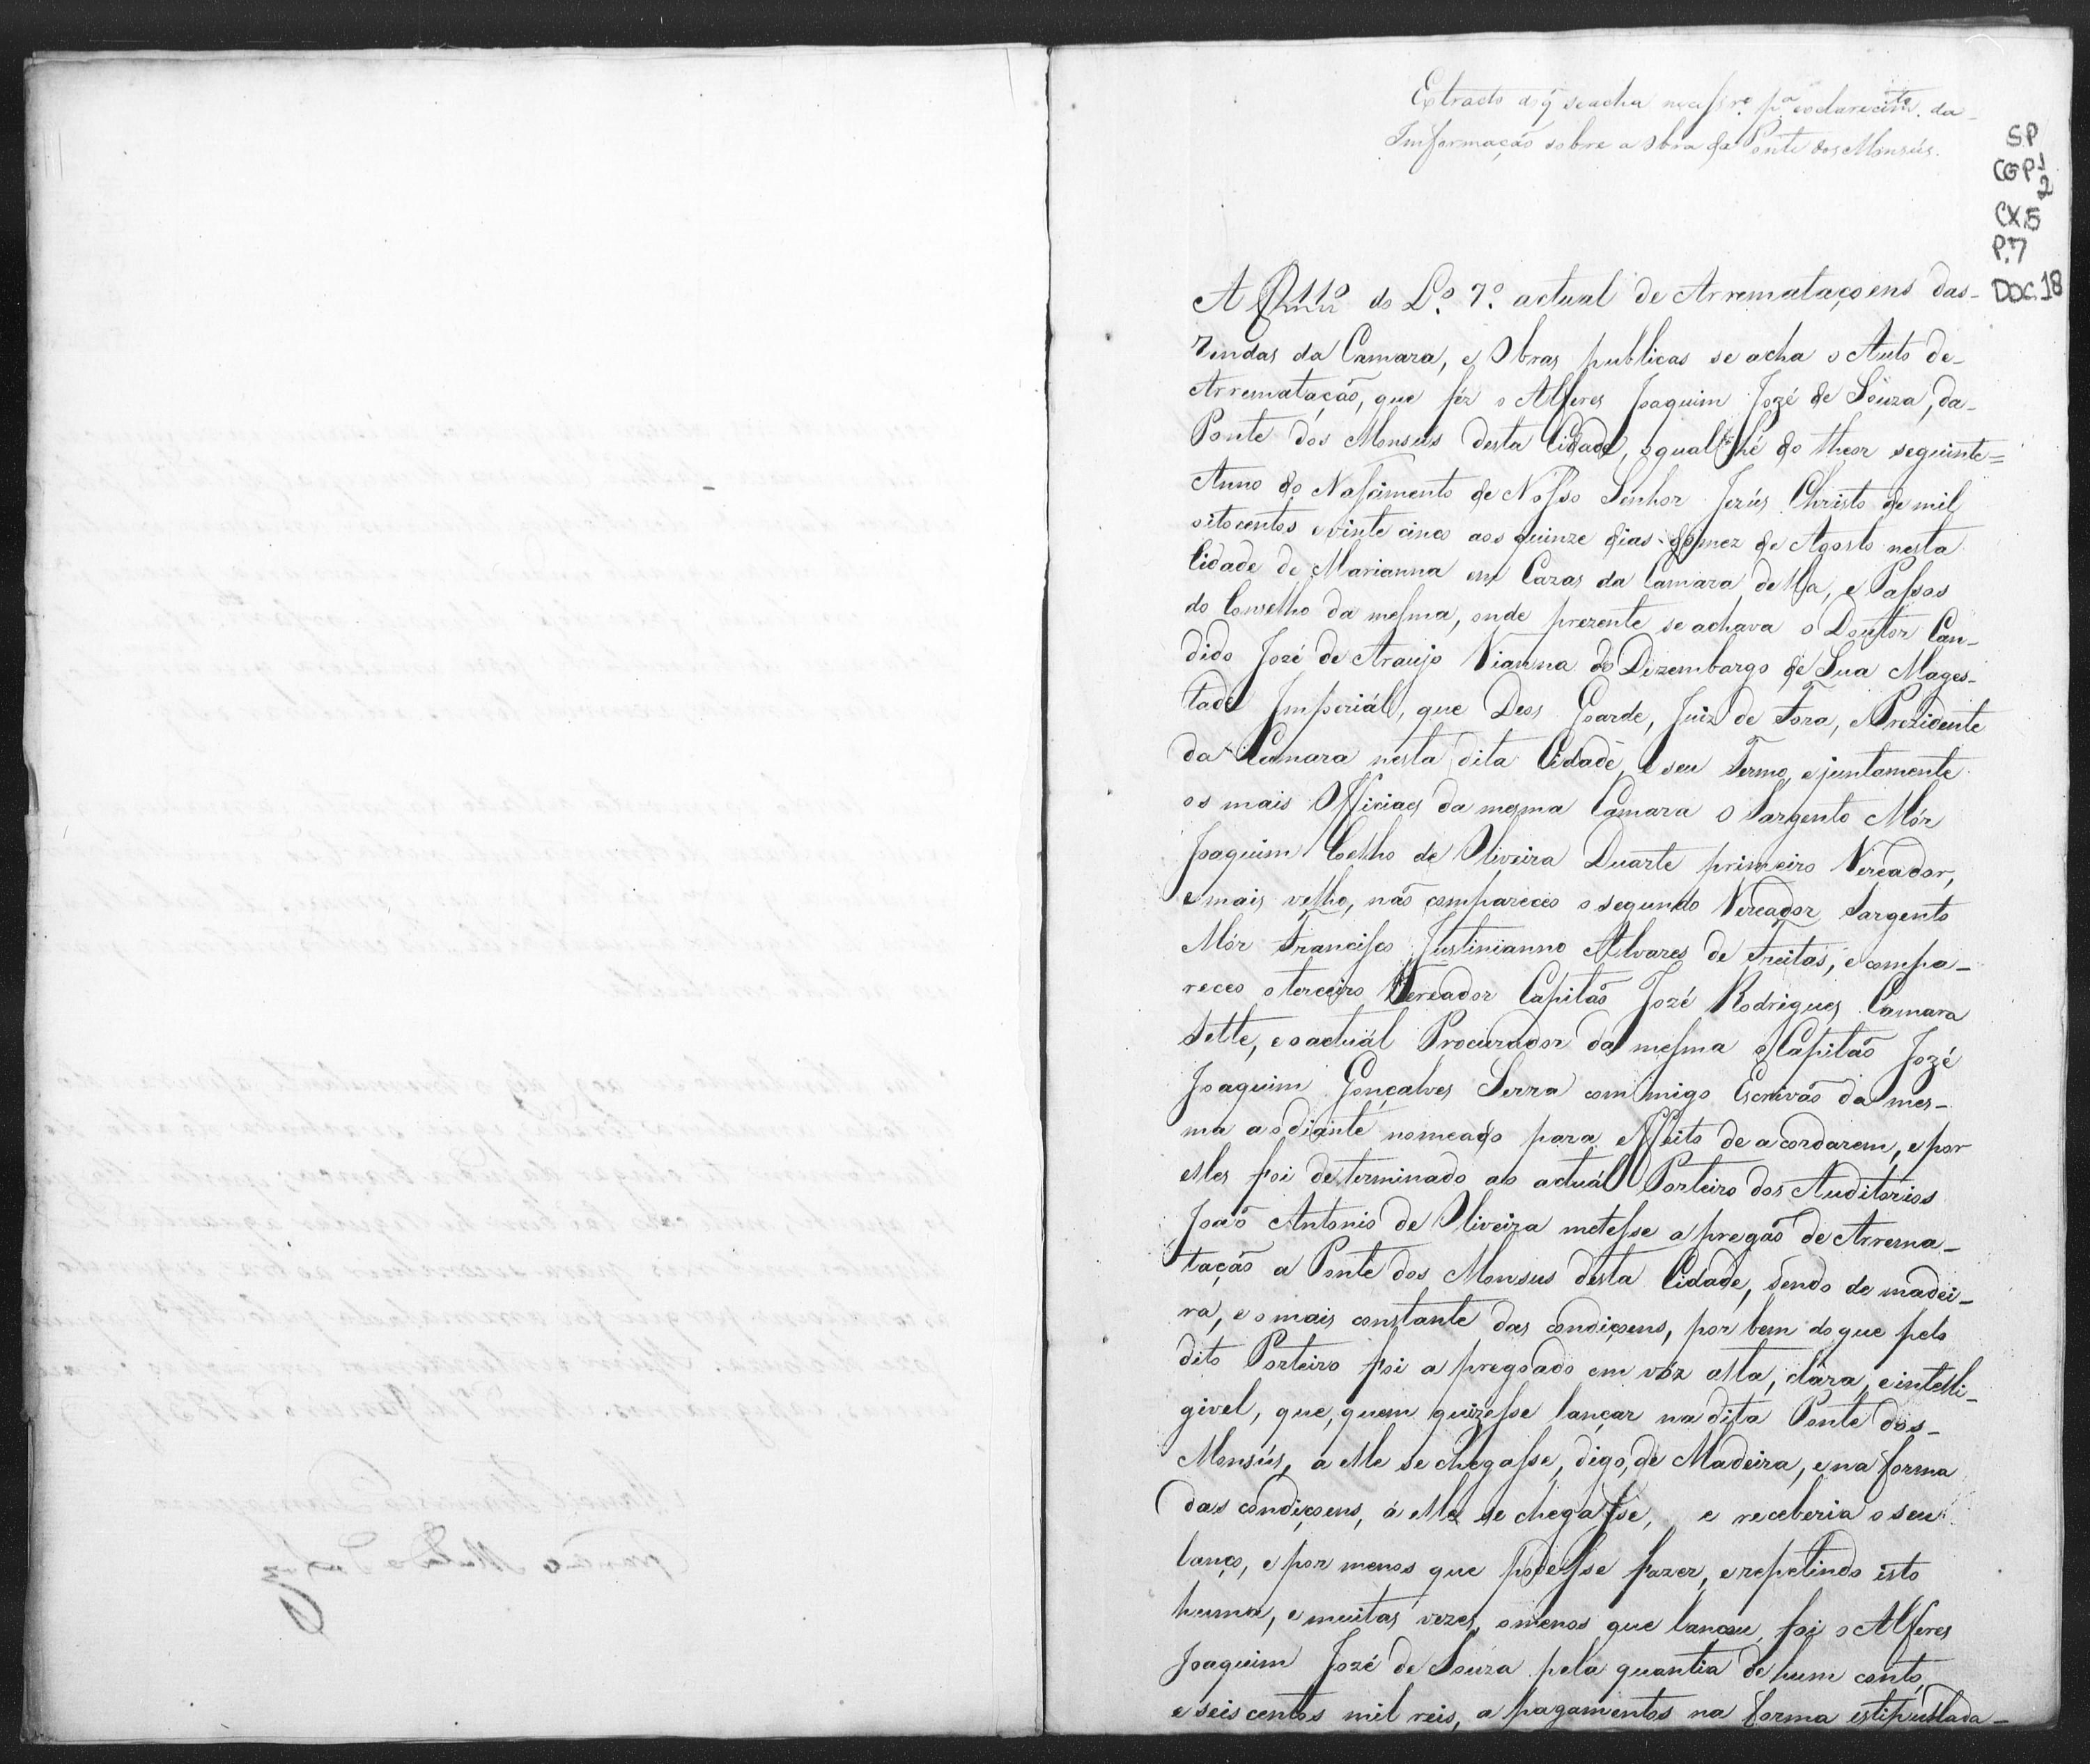 Extracto do q̃ se acha necessr.º p.ª esclarecim.to da
Informação sobre a Obra da Ponte dos Monsús.
SP
CGP1
2
CX.5
P.7
DOC.18
A f 110 do L.º 7.º actual de Arremataçoens das
rendas da Camara, e Obras publicas se acha o Auto de
Arrematação, que féz o Alferes Joaquim Jozé de Souza, da
Ponte dos Monsus desta Cidade, o qual hé do theor seguinte=
Anno do Nascimento de Nosso Senhor Jezús Christo de mil
oitocentos e vinte cinco aos quinze dias do mez de Agosto nesta
Cidade de Marianna em Cazas da Camara della, e Passos
do Conselho da mesma, onde prezente se achava o Doutor Can-
dido Jozé de Araujo Vianna do Dizembargo de Sua Mages-
tade Imperiál, que Deos Goarde, Juiz de Fora, e Prezidente
da Camara nesta dita Cidade, e seu Termo, e juntamente
os mais Officiaes da mesma Camara o Sargento Mór
Joaquim Coelho de Oliveira Duarte primeiro Vereador,
e mais velho, não compareceo o segundo Vereador Sargento
Mór Francisco Justinianno Alvares de Freitas, e compa-
receo o terceiro Vereador Capitão Jozé Rodrigues Camara
Sette, e o actuál Procurador da mesma o Capitão Jozé
Joaquim Gonçalves Serra commigo Escrivão da mes-
ma a odiante nomeado para effeito de acordarem, e por
elles foi determinado ao actuál Porteiro dos Auditorios
João Antonio de Oliveira metesse a pregão de Arrema-
tação a Ponte dos Monsus desta Cidade, sendo de madei-
ra, e o mais constante das condiçoens, por bem do que pelo
dito Porteiro foi a pregoado em vóz alta, clára, e intelli-
givel, que, quem quizesse lançar na dita Ponte dos
Monsús, a elle se chegasse, digo, de Madeira, e na forma
das condiçoens, á elle se chegasse, e receberia o seu
lanço, e por menos que podesse fazer, e repetindo isto
huma, e muitas vezes, o menos que lançou, foi o Alferes
Joaquim Jozé de Souza pela quantia de hum conto,
e seis centos mil reis, a pagamentos na forma estipullada